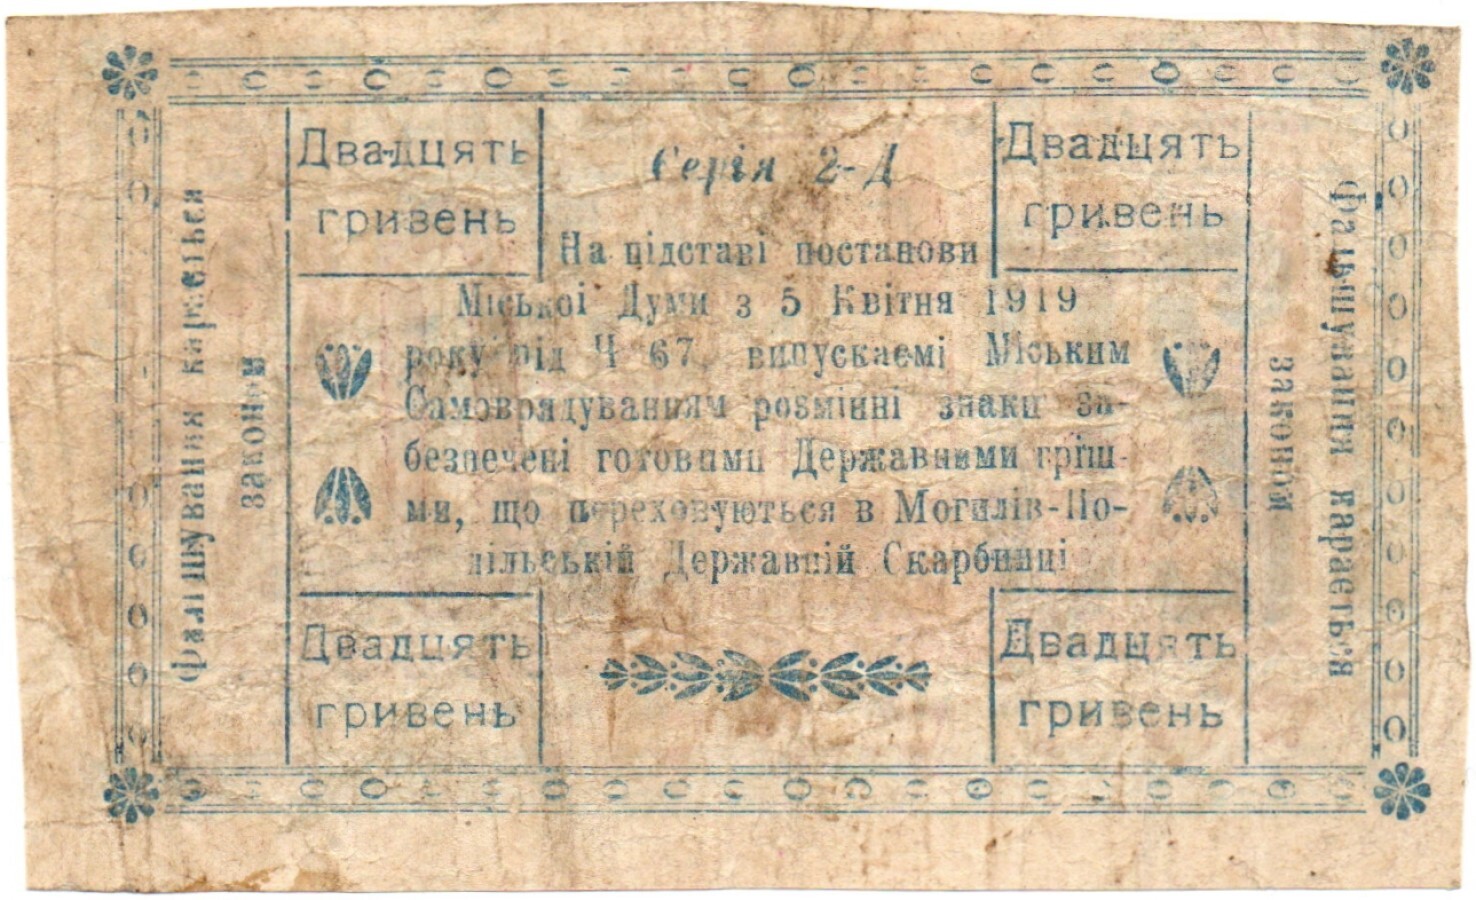 Двадцять
гривень
Серія 2-Д
Двадцять
гривень
На підставі постанови
Міської Думи з 5 Квітня 1919
року під Ч 67 випускаємі Міським
Самоврядуванням розмінні знаки за-
безпечені готовими Державними гріш-
ми, що переховуються в Могилів-По-
дільській Державній Скарбниці
Двадцять
гривень
Двадцять
гривень
Фальшування карається
законом
Фальшування карається
законом